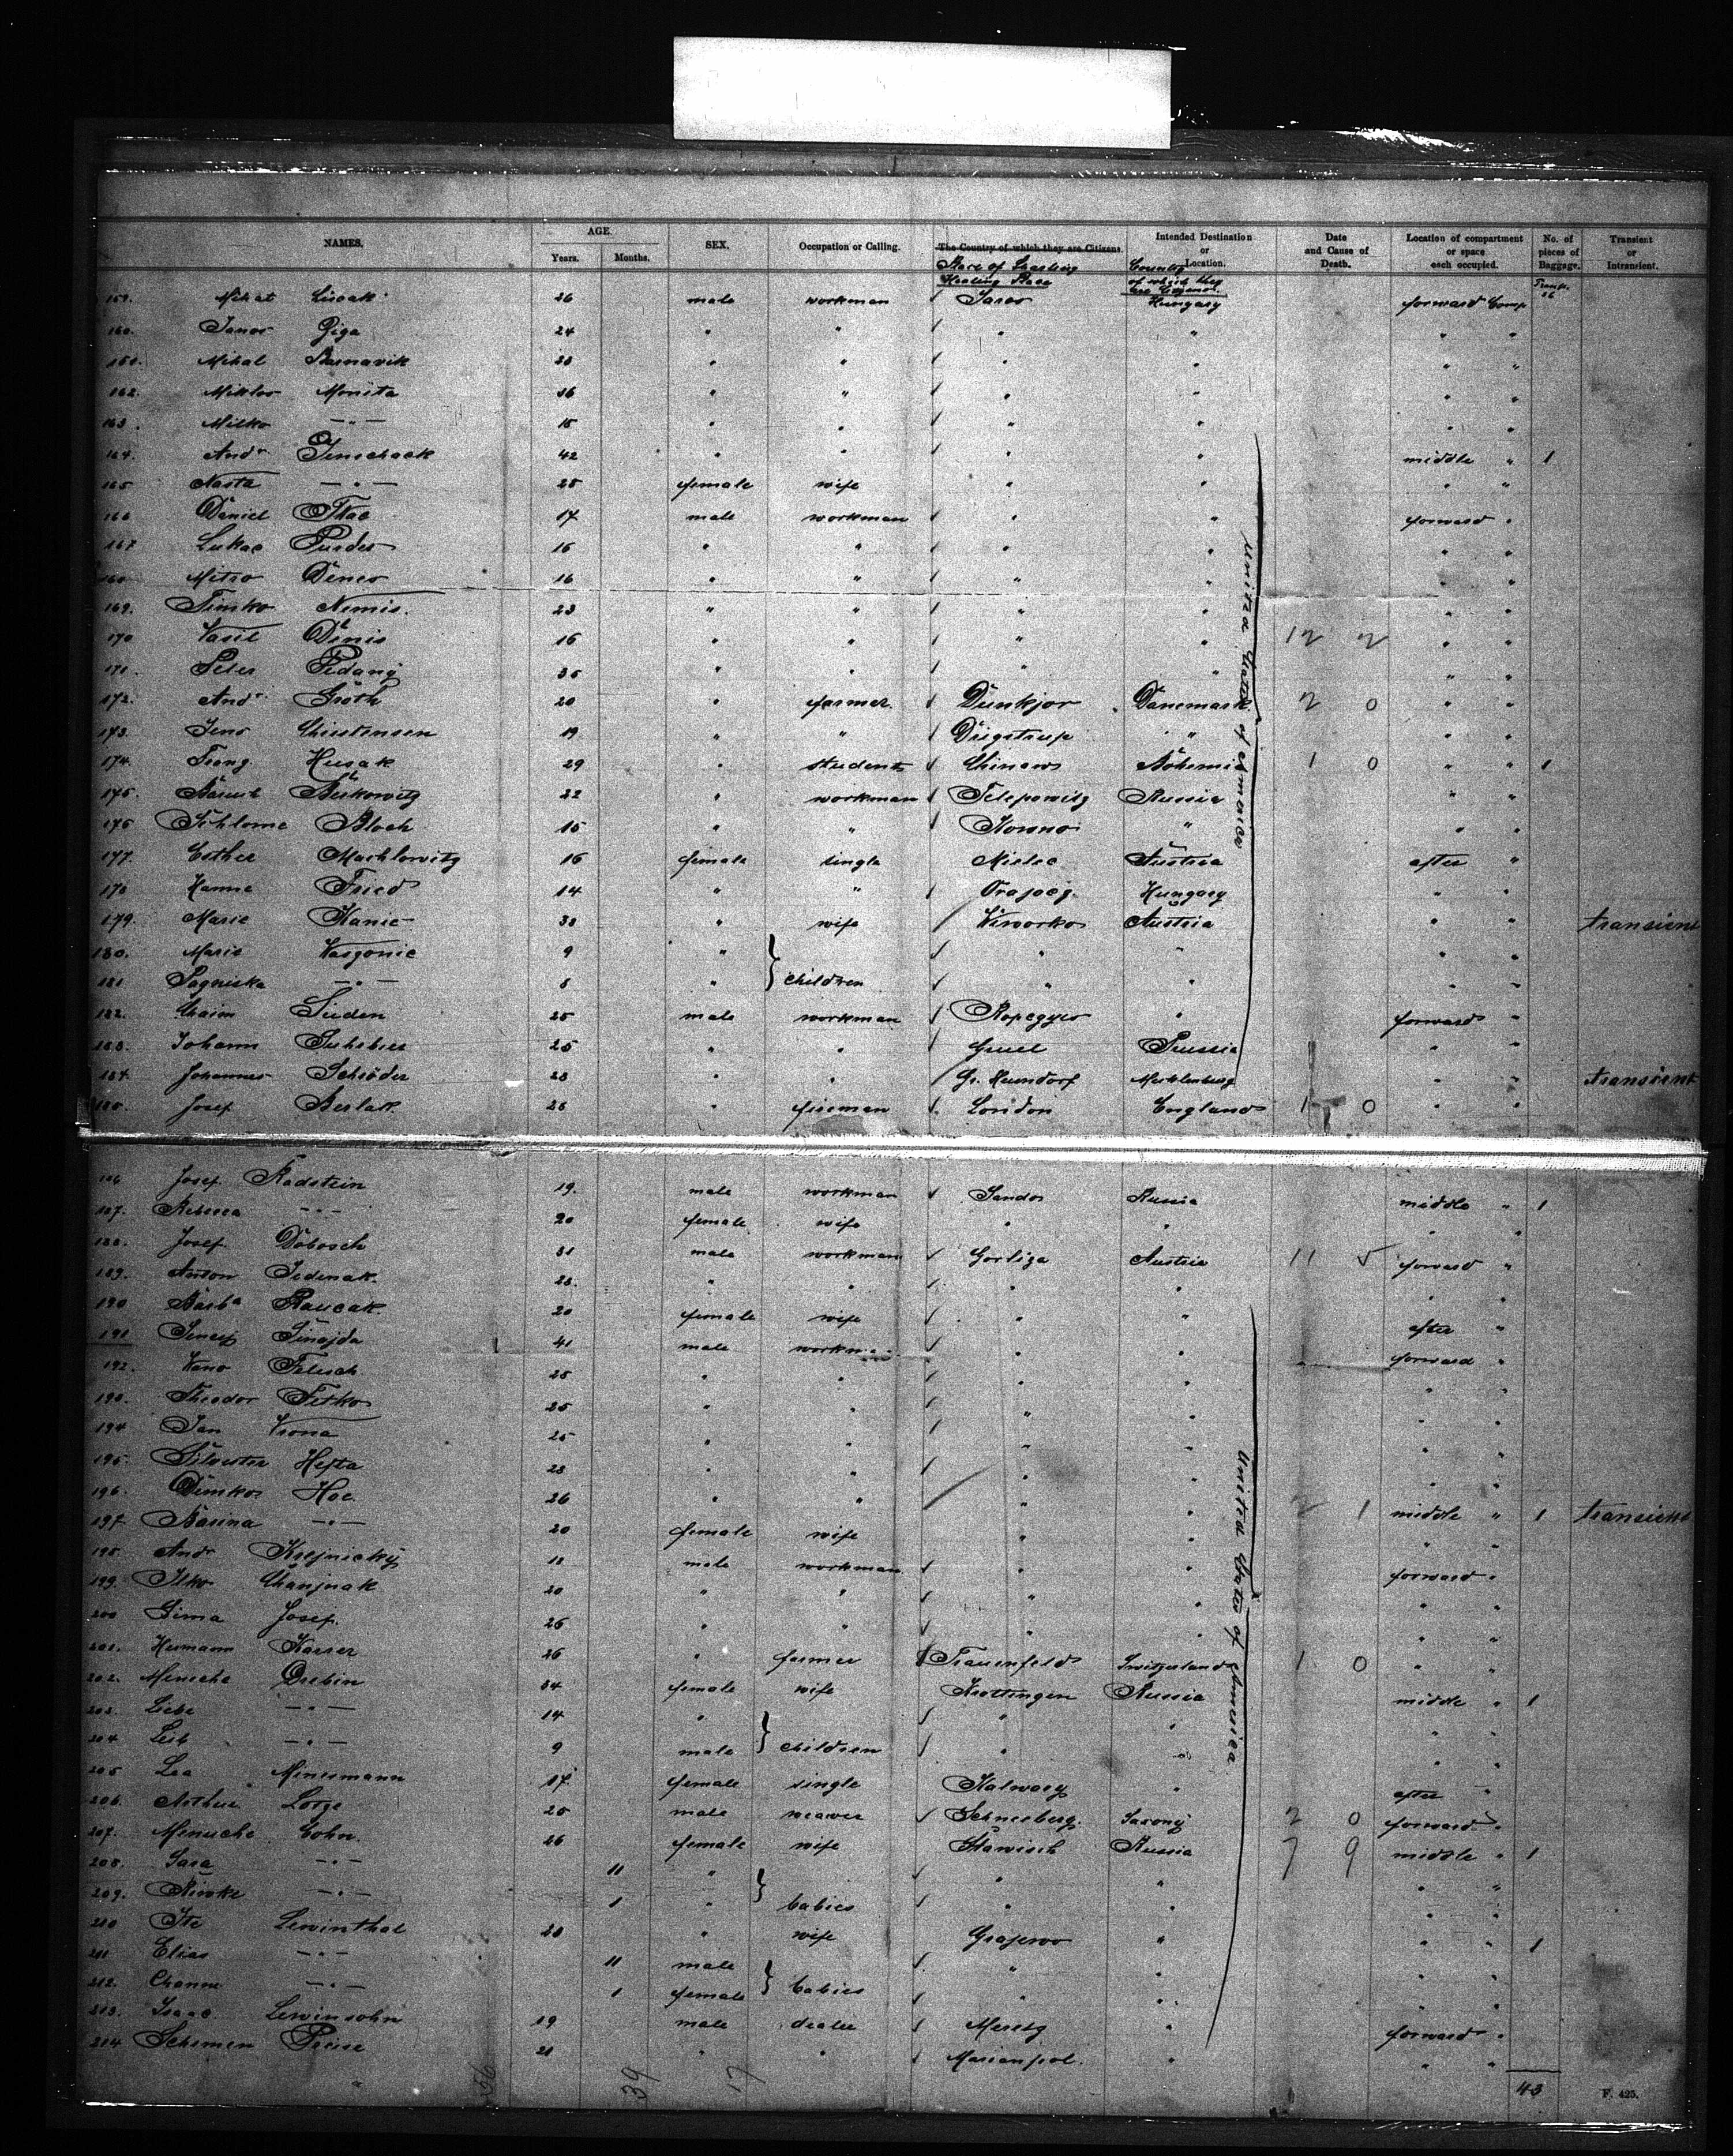 NAMES. AGE. SEX. Occupation or Calling. The Country of which they are Citizens. Intended Destination or Location. Date and Cause of Death. Location of compartment or space each occupied. No. of pieces of Baggage. Transient or Intransient.
Years. Months. Country of which they are Citizens.
159. 26 male workman Saros Hungary forward Comp.
160. Janos Giga 24 " " " " " "
161. Mihal 23 " " " " " "
162. Miklos Monita 16 " " " " " "
163. Milko — " — 15 " " " " " "
164. Andr. 42 " " " " middle " 1
165 Nasta — " — 25 female wife " " " "
166 Daniel Tkac 17 male workman " " forward "
167 Lukac Purdes 16 " " " " " "
168 Mitro Denes 16 " " " " " "
169. Timko Nemis. 23 " " " " " "
170 Vasil Denis 16 " " " " 12 2 " "
171. Peter Pedany 35 " " " " " "
172. Andr. Groth 20 " farmer Dunkjor Danemark 2 0 " "
173. Jens Christensen 19 " " Dügstrup " " "
174. Franz Husak 29 " student Chinaws Bohemia 1 0 " " 1
175. Berkowitz 22 " workman Telepowitz Russia " "
176 Schlome Bloch 15 " " Kowno " " "
177. Esther Machlowitz 16 female single Mielec Austria after "
178 Hanne Fried 14 " " Hungary " "
179. Marie Kanie 38 " wife Austria " " transient
180. Marie Vaszonic 9 " " " " "
181 — " — 8 " children " " " "
182. Chaim Süden 25 male workman Ropczyce " forward "
183. Johann Suhrbier 25 " " Gruel Prussia " "
184. Johannes Schröder 28 " " Mecklenburg " " transient
185. Josef Berlak 28 " fireman London England 1 0 " "
United States of America
186 Josef Radstein 19. male workman Sandos Russia middle " 1
187. Rebecca — " — 20 female wife " " " "
188. Josef Dobosch 31 male workman Gorliza Austria 11 5 forward "
189. Anton Jedenak. 28. " " " " " "
190 Barba 20 female wife " " after "
191 41 male workm " " forward "
192. Wano Felesch 25 " " " " " "
193. Theodor Fetko 25 " " " " " "
194 Jan Vrona 25 " " " " " "
195. Silvester Hefta 23 " " " " " "
196. Dimko Hoc 26 " " " " 2 1 middle " 1 transient
197 — " — 20 female wife " " " "
198 Andr Krejnicky 18 male workman " " forward "
199. Ilko Chanjnak 20 " " " " " "
200 Sima Josef. 26 " " " " " "
201. Hermann Kaiser 26 " farmer Frauenfeld Switzerland 1 0 " "
202. Menscha Drebin 34 female wife Krottingen Russia middle " 1
203. Liebe — " — 14 " " " " "
204 Leib — " — 9 male children " " " "
205 Lea Minesmann 17 female single Kalwary " after "
206. Arthur Lorze 20 male weaver Schneeberg. Saxony 2 0 forward "
207. Menuche Cohn. 26 female wife Stawisch Russia 7 9 middle " 1
208. Sara — " — 11 " " " " "
209. Riwke — " — 1 " babies " " " "
210 Ite Lewinthal 28 " wife Grajewo " " " 1
211 Elias — " — 11 male " " " "
212. Channe — " — 1 female babies " " " "
213. Isaac Lewinsohn 19 male dealer Meretz " forward "
214 Schemen Preise 21 " " Marianpol. " " "
United States of America
56 39 17 43 F. 425.